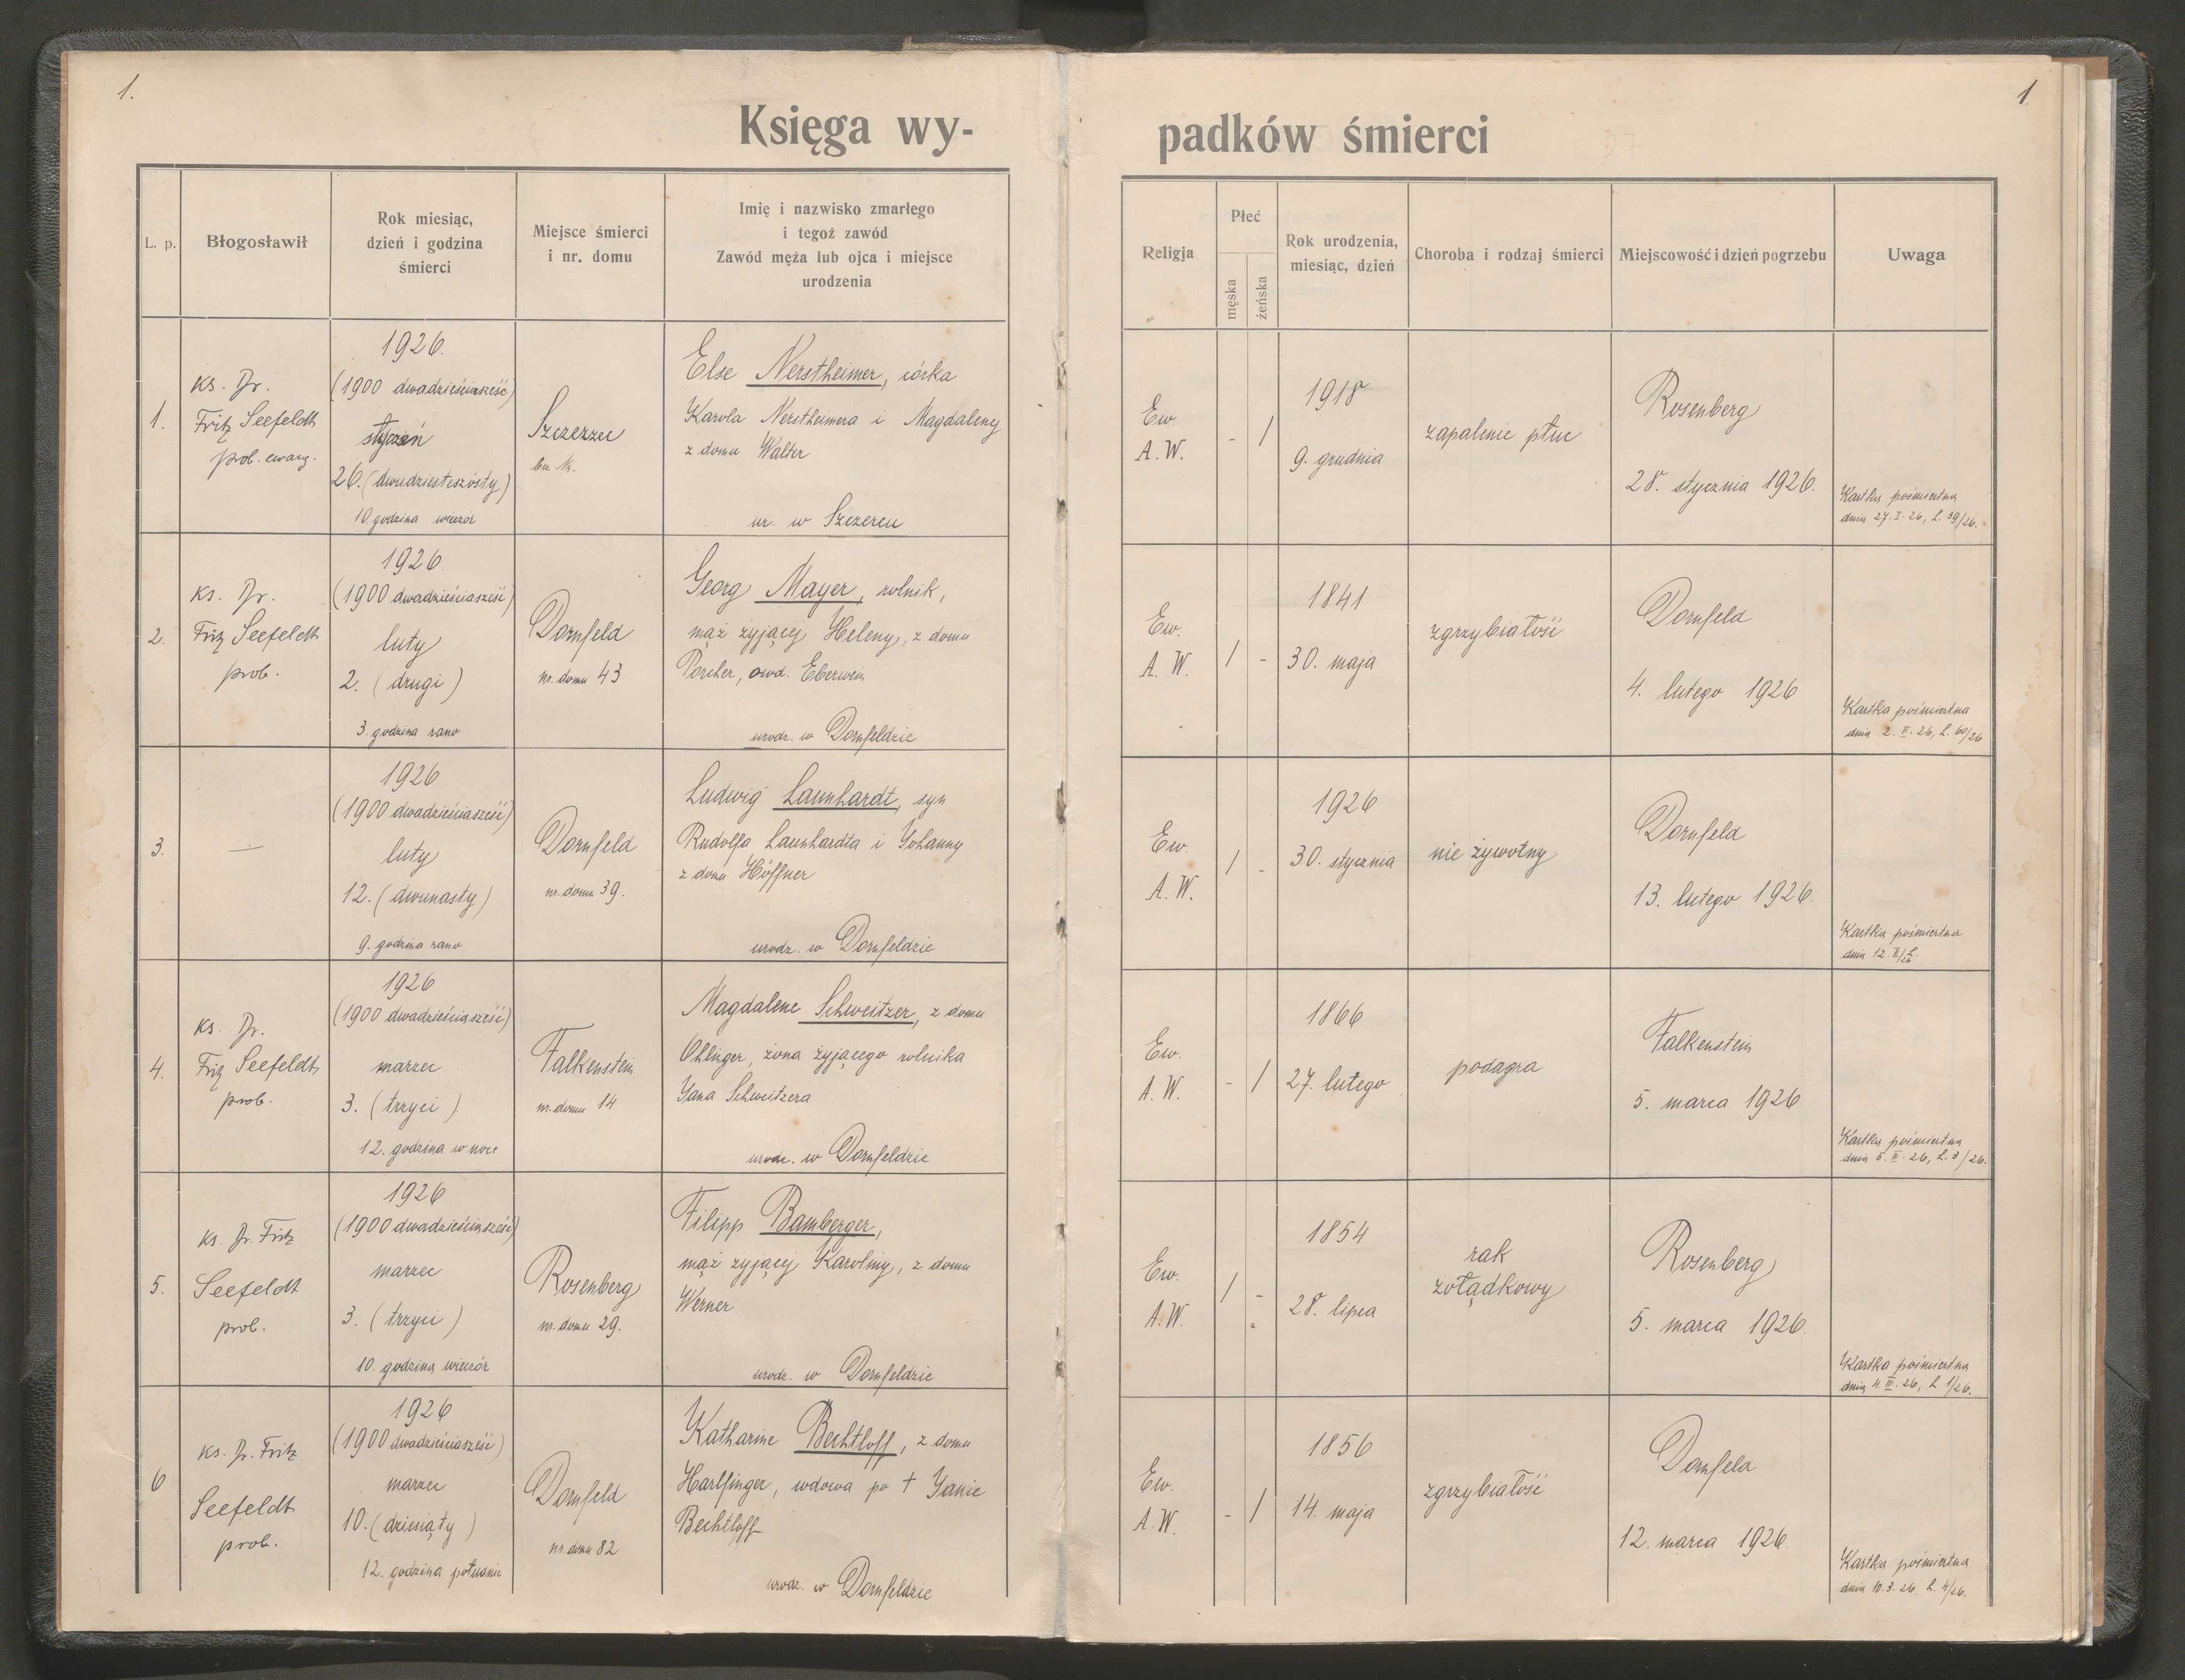 1.
1
Księga wy-
padków śmierci
L. p.
Błogosławił
Rok miesiąc,
dzień i godzina
śmierci
Miejsce śmierci
i nr. domu
Imię i nazwisko zmarłego
i tegoż zawód
Zawód męża lub ojca i miejsce
urodzenia
Religja
Płeć
męska
żeńska
Rok urodzenia,
miesiąc, dzień
Choroba i rodzaj śmierci
Miejscowość i dzień pogrzebu
Uwaga
1.
ks. Dr.
Fritz Seefeldt
prob. ewang.
1926.
(1900 dwadzieściasześć)
styczeń
26. (dwudziesteszósty)
10. godzina wieczór
Szczerzec
bez Nr.
Else Nerstheimer, córka
Karola Nerstheimera i Magdaleny
z domu Walter
ur. w Szczercu
Ew.
A. W.
- /
1918
9. grudnia
zapalenie płuc
Rosenberg
28. stycznia 1926.
Kartka pośmiertna
dnia 27. I. 26, L. 39/26.
2.
ks. Dr.
Fritz Seefeldt
prob.
1926
(1900 dwadzieściasześć)
luty
2. (drugi)
3. godzina rano
Dornfeld
nr. domu 43
Georg Mayer, rolnik,
mąż żyjącej Heleny, z domu
Porcher, owd. Eberwein
urodz. w Dornfeldzie
Ew.
A. W.
/ -
1841
30. maja
zgrzybiałość
Dornfeld
4. lutego 1926
Kartka pośmiertna
dnia 2. II. 26, L. 60/26
3.
—
1926
(1900 dwadzieściasześć)
luty
12. (dwunasty)
9. godzina rano
Dornfeld
nr. domu 39.
Ludwig Launhardt, syn
Rudolfa Launhardta i Johanny
z domu Höffner
urodz. w Dornfeldzie
Ew.
A. W.
/ -
1926
30. stycznia
nie żywotny
Dornfeld
13. lutego 1926.
Kartka pośmiertna
dnia 12. II/26 L.
4.
ks. Dr.
Fritz Seefeldt
prob.
1926
(1900 dwadzieściasześć)
marzec
3. (trzyci)
12. godzina w noce
Falkenstein
nr. domu 14
Magdalene Schweitzer, z domu
Ohlinger, żona żyjącego rolnika
Jana Schweitzera
urodz. w Dornfeldzie
Ew.
A. W.
- /
1866
27. lutego
podagra
Falkenstein
5. marca 1926
Kartka pośmiertna
dnia 5. III. 26, L. 3/26.
5.
ks. Dr. Fritz
Seefeldt
prob.
1926
(1900 dwadzieściasześć)
marzec
3. (trzyci)
10. godzina wieczór
Rosenberg
nr. domu 29.
Filipp Bamberger,
mąż żyjącej Karoliny, z domu
Werner
urodz. w Dornfeldzie
Ew.
A. W.
/ -
1854
28. lipca
rak
żołądkowy
Rosenberg
5. marca 1926.
Kartka pośmiertna
dnia 4. III. 26, L. 1/26.
6
ks. Dr. Fritz
Seefeldt
prob.
1926
(1900 dwadzieściasześć)
marzec
10. (dziesiąty)
12. godzina
Dornfeld
nr. domu 82
Katharine Bechtloff, z domu
Harlfinger, wdowa po † Janie
Bechtloff
urodz. w Dornfeldzie
Ew.
A. W.
- /
1856
14. maja
zgrzybiałość
Dornfeld
12. marca 1926.
Kartka pośmiertna
dnia 10. 3. 26, L. 4/26.